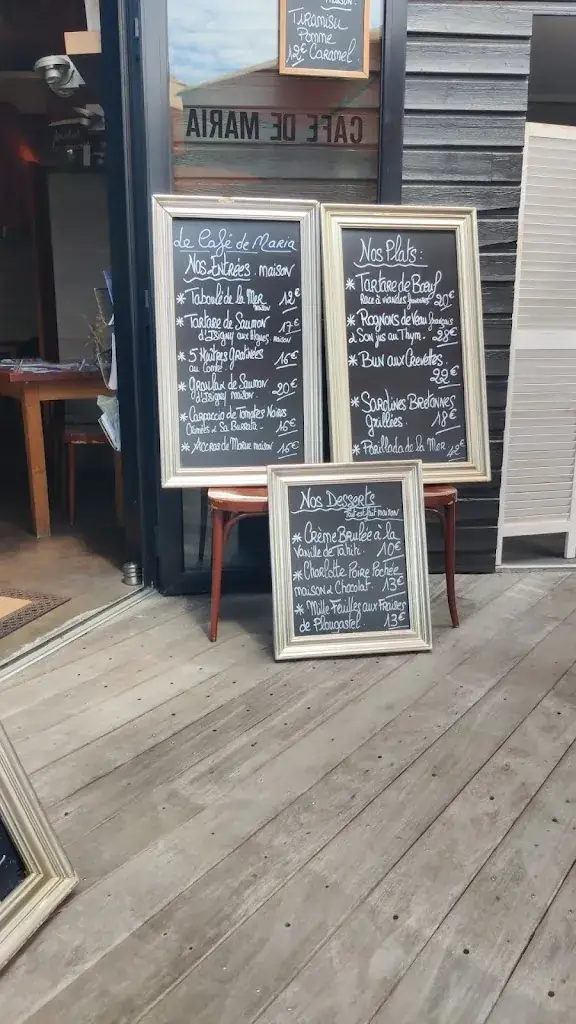 MAISON.
TIRAMISU
POMME
12€ CARAMEL
CAFE DE MARIA
Le Café de MARIA
NOS ENTRÉES : MAISON
* Taboulé de la Mer 12€
maison
* Tartare de Saumon 17€
d'Isigny aux Algues maison
* 5 Huîtres Gratinées
au Comté. 16€
* Gravlax de Saumon 20€
d'Isigny maison.
* Carpaccio de Tomates Noires
& Sa Burrata. 16€
* Accras de Morue maison 16€
Nos Plats :
* Tartare de Bœuf
Race à viandes française 20€
* Rognons de Veau français
& Son jus au Thym. 28€
* Bun aux Crevettes.
22€
* Sardines Bretonnes
grillées. 18€
* Parillada de la Mer 42€
Nos Desserts
Tout est fait maison
* Crème Brulée à la
Vanille de Tahiti. 10€
* Charlotte Poire Pochée
maison & Chocolat. 13€
* Mille Feuilles aux Fraises
de Plougastel 13€